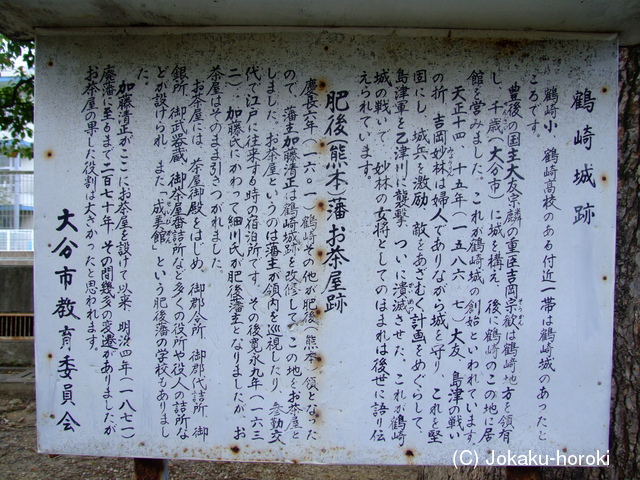 鶴崎城跡
鶴崎小、鶴崎高校のある付近一帯は鶴崎城のあったと
ころです。
豊後の国主大友宗麟の重臣吉岡宗歓は鶴崎地方を領有
し、千歳(大分市)に城を構え、後に鶴崎のこの地に居
館を営みました。これが鶴崎城の創始といわれています。
天正十四、十五年(一五八六、七)大友、島津の戦い
の折、吉岡妙林は婦人でありながら城を守り、これを堅
固にし、城兵を激励、敵をあざむく計画をめぐらして、
島津軍を乙津川に襲撃、ついに潰滅させた、これが鶴崎
城の戦いで、妙林の女将としてのほまれは後世に語り伝
えられています。
肥後(熊本)藩お茶屋跡
慶長六年(一六〇一)鶴崎の他が肥後(熊本)領となった
ので、藩主加藤清正は鶴崎城跡を改修して、この地をお茶屋と
しました。お茶屋というのは藩主が領内を巡視したり、参勤交
代で江戸に往来する時の宿泊所です。その後寛永九年(一六三
二)、加藤氏にかわって細川氏が肥後藩主となりましたが、お
茶屋はそのまま引きつがれました。
お茶屋には、茶屋御殿をはじめ、御郡会所、御郡代詰所、御
銀所、御武器蔵、御茶屋番詰所など多くの役所や役人の詰所な
どが設けられ、また「成美館」という肥後藩の学校もありまし
た。
加藤清正がここにお茶屋を設けて以来、明治四年(一八七一)
廃藩に至るまで二百七十年、その間幾多の変遷がありましたが
お茶屋の果した役割は大きかったと思われます。
大分市教育委員会
(C) Jokaku-horoki